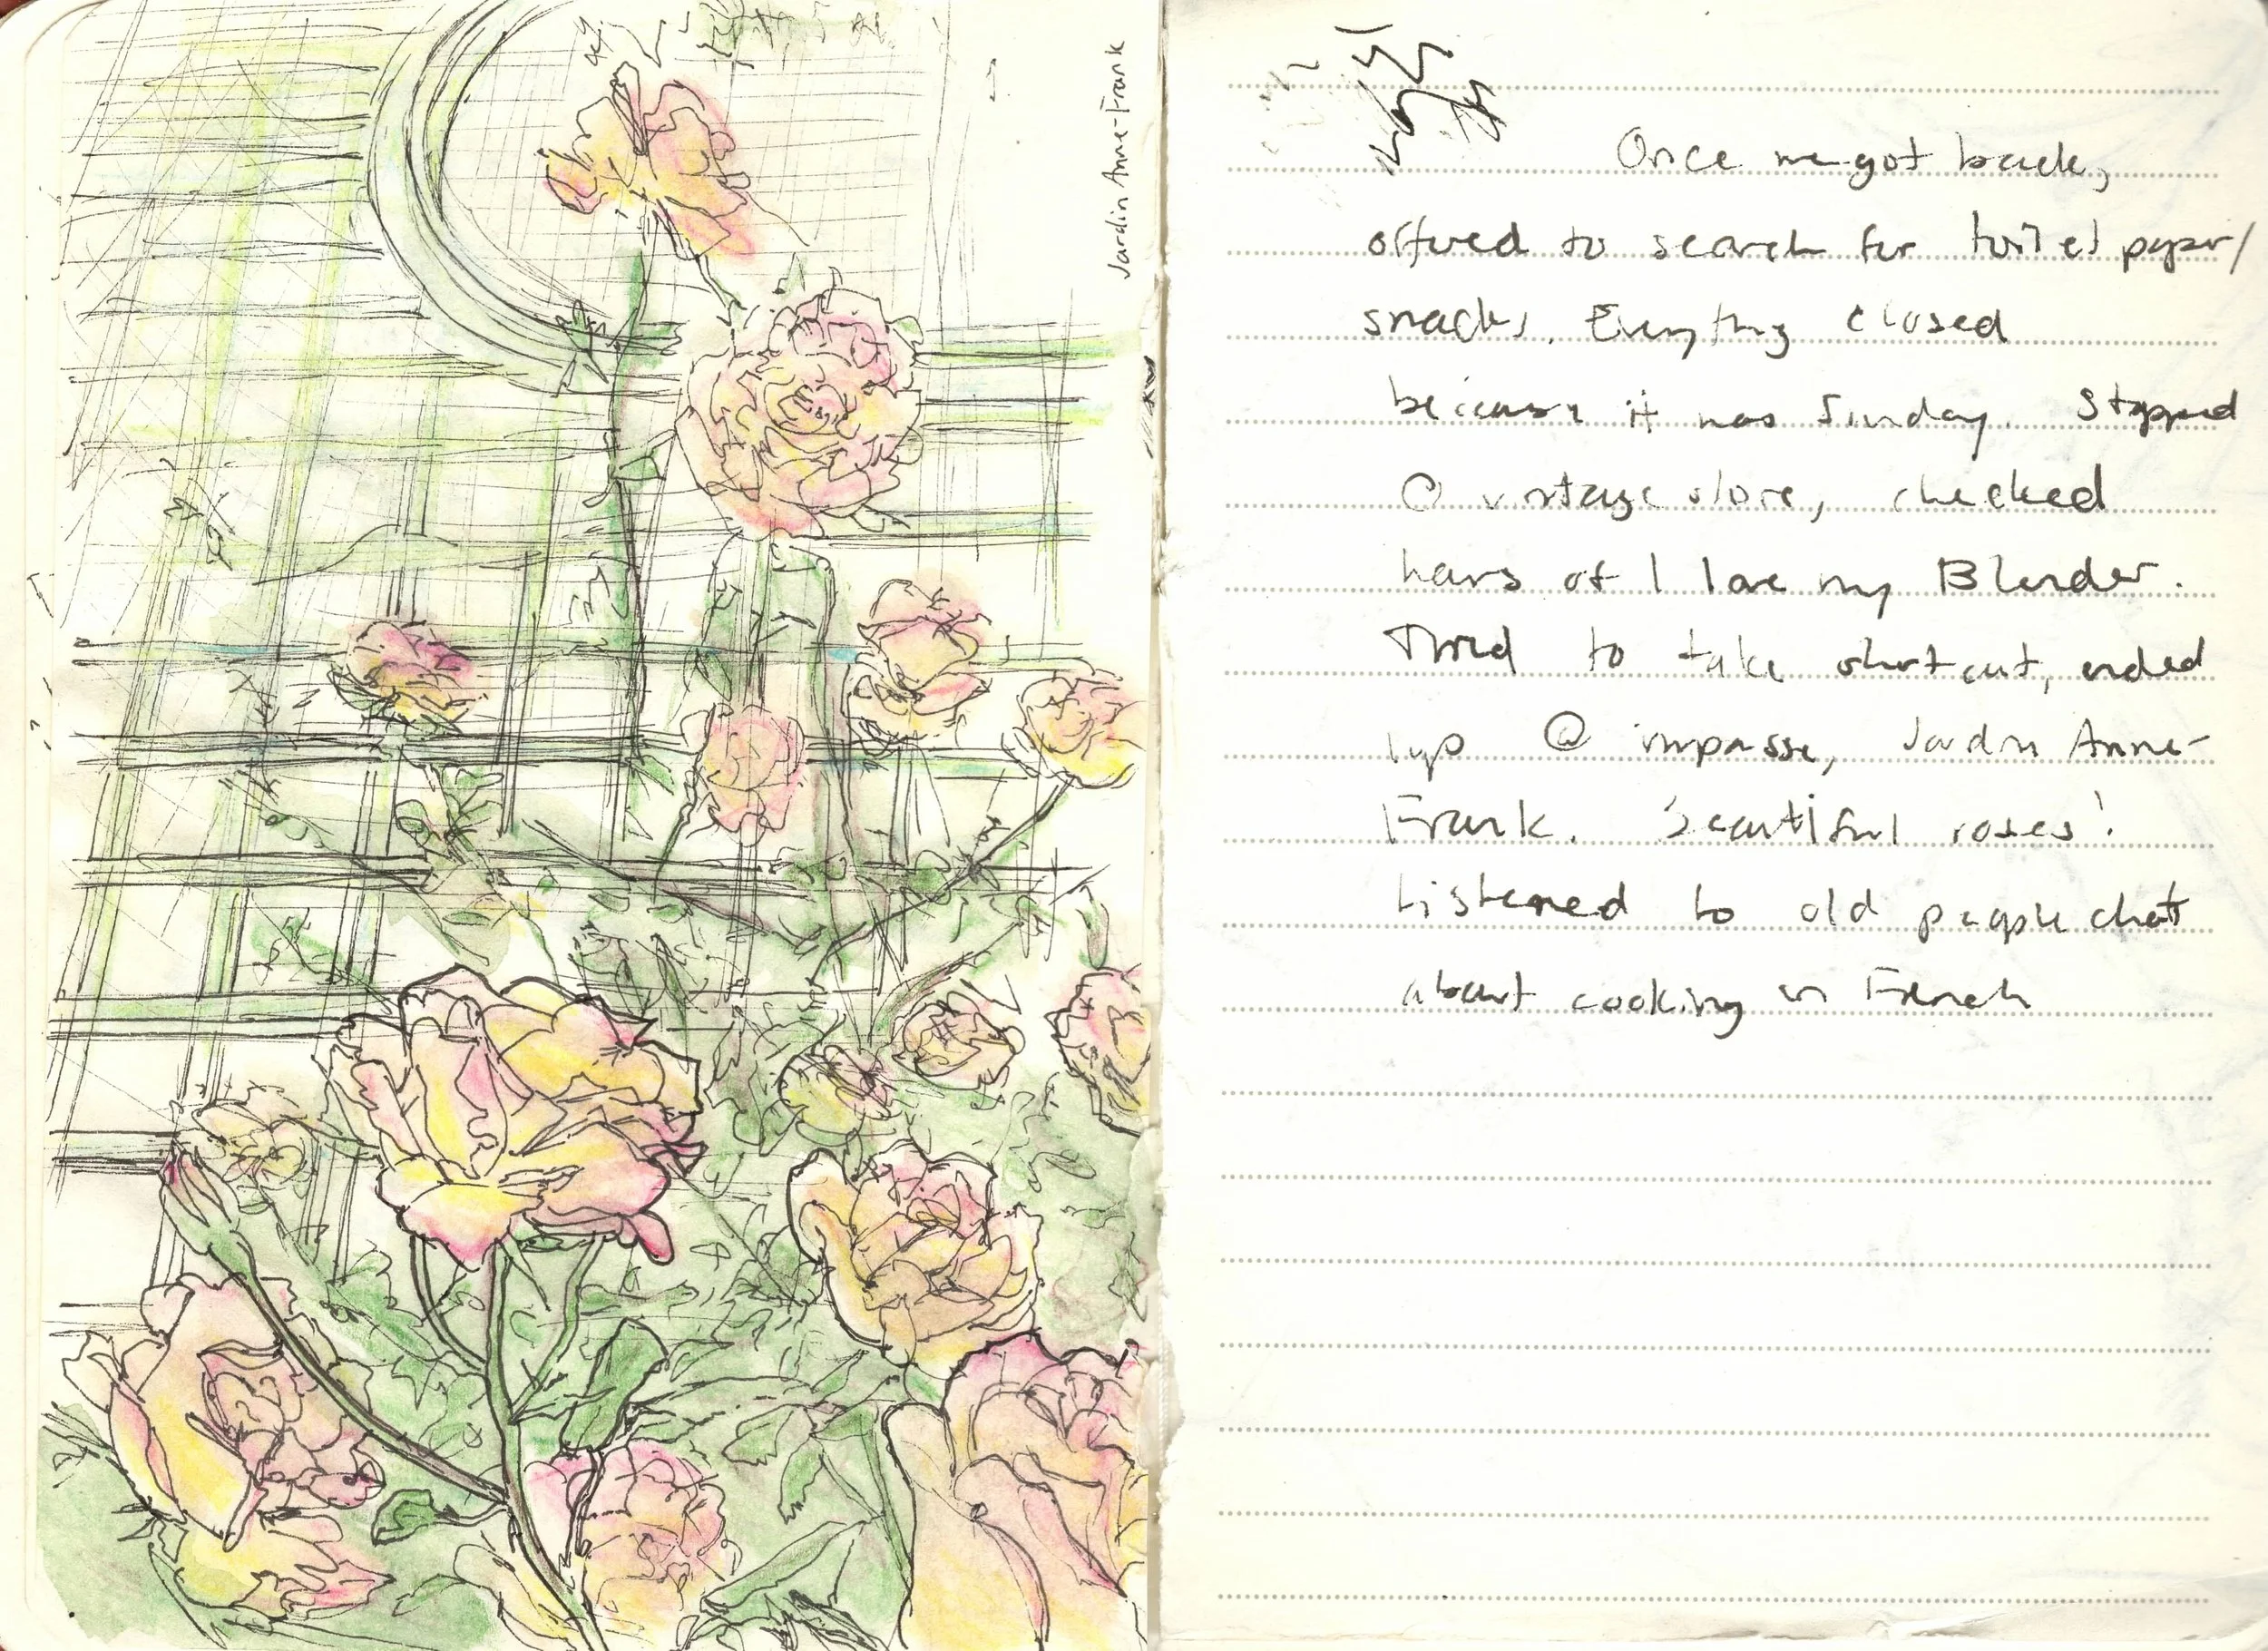 Jardin Anne-Frank
Once we got back,
offered to search for toilet paper/
snacks. Everything closed
because it was Sunday. Stopped
@ vintage store, checked
hours of I love my Blender.
Tried to take shortcut, ended
up @ impasse, Jardin Anne-
Frank. Beautiful roses!
Listened to old people chat
about cooking in French